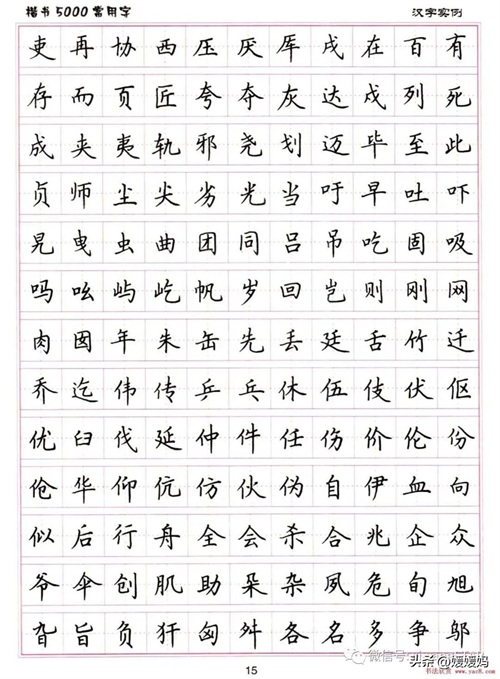 楷书5000常用字 汉字实例
吏再协西压厌厍戌在百有
存而页匠夸夺灰达戍列死
成夹夷轨邪尧划迈毕至此
贞师尘尖劣光当吁早吐吓
晃曳虫曲团同吕吊吃固吸
吗吆屿屹帆岁回岂则刚网
肉囡年朱缶先丢廷舌竹迁
乔迄伟传乒乓休伍伎伏伛
优臼伐延仲件任伤价伦份
伧华仰伉仿伙伪自伊血向
似后行舟全会杀合兆企众
爷伞创肌助朵杂夙危旬旭
旮旨负犴匈舛各名多争邬
15
微信号
头条@媛媛妈
书法欣赏 www.yac8.com